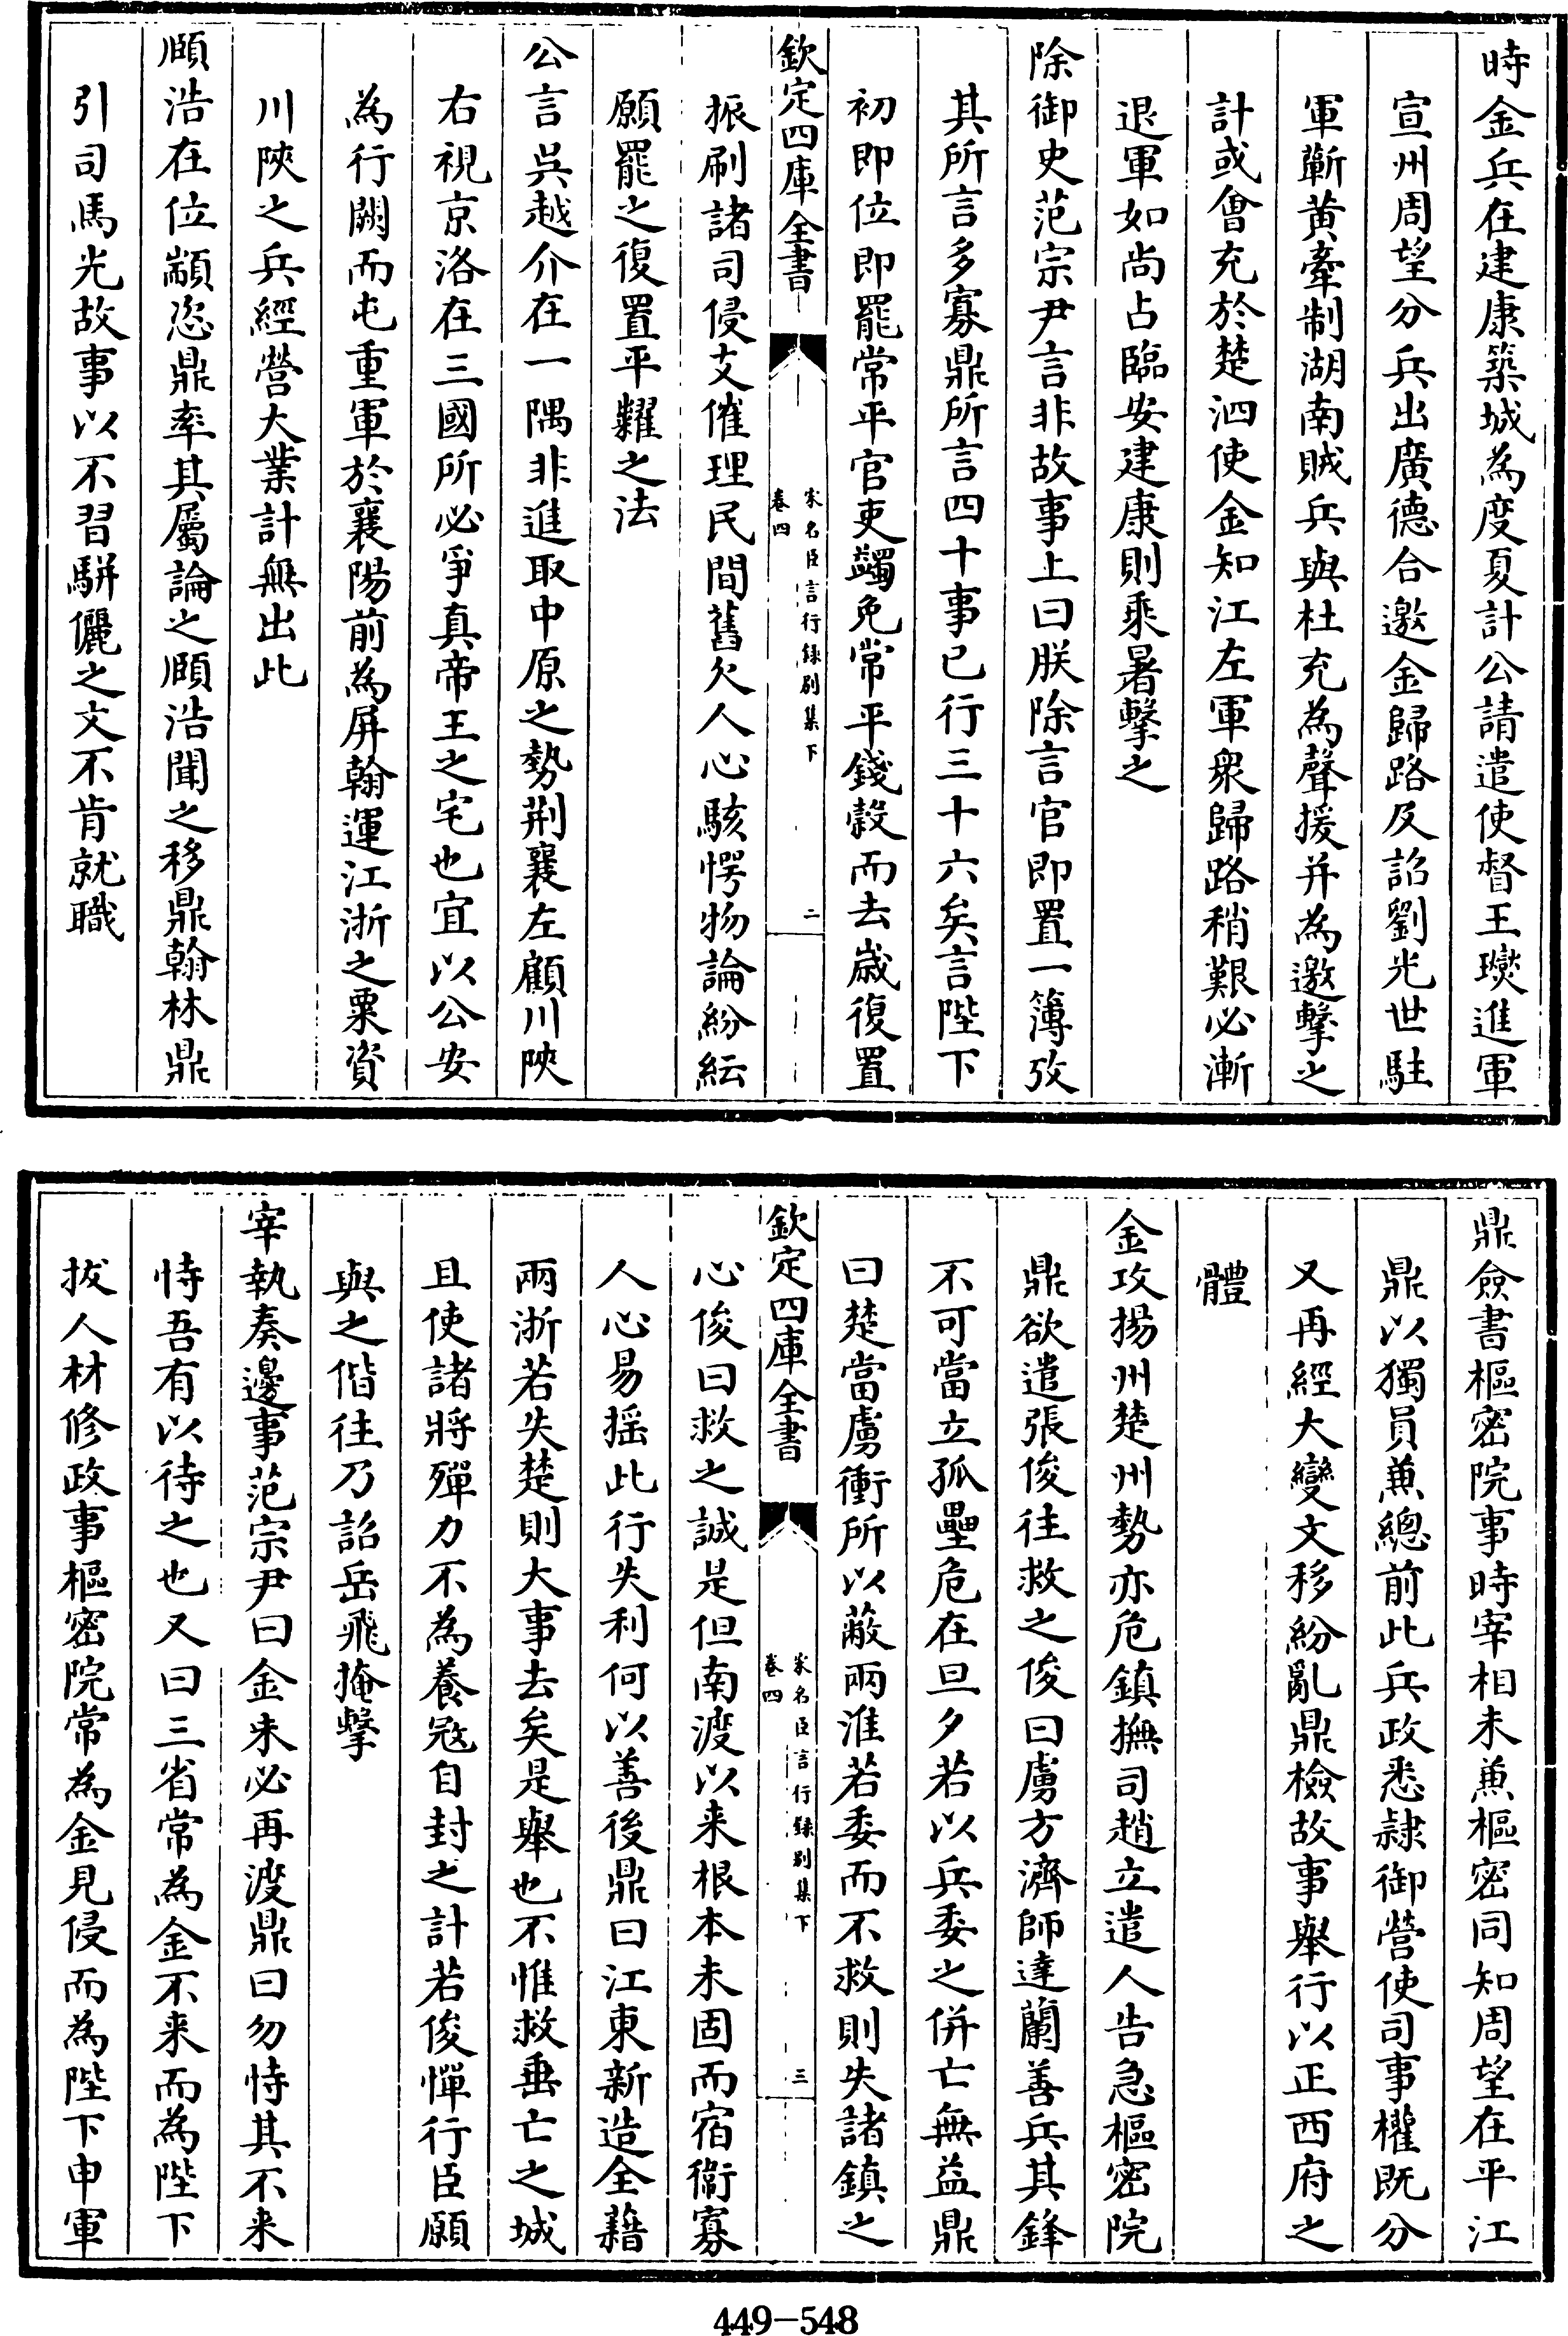 時金兵在建康築城為度夏計公請遣使督王𤫉進軍
宣州周望分兵出廣德合邀金歸路及詔劉光世駐
軍蘄黄牽制湖南賊兵與杜充為聲援并為邀擊之
計或會充於楚泗使金知江左軍衆歸路稍艱必漸
退軍如尚占臨安建康則乘暑擊之
除御史范宗尹言非故事上曰朕除言官即置一簿攷
其所言多寡鼎所言四十事已行三十六矣言陛下
初即位即罷常平官吏蠲免常平錢穀而去歲復置
欽定四庫全書
宋名臣言行録别集下
卷四
二
振刷諸司侵支催理民間舊欠人心駭愕物論紛紜
願罷之復置平糶之法
公言呉越介在一隅非進取中原之勢荆襄左顧川陜
右視京洛在三國所必爭真帝王之宅也宜以公安
為行闕而屯重軍於襄陽前為屏翰運江浙之粟資
川陜之兵經營大業計無出此
頤浩在位顓恣鼎率其屬論之頤浩聞之移鼎翰林鼎
引司馬光故事以不習駢儷之文不肯就職
鼎僉書樞密院事時宰相未兼樞密同知周望在平江
鼎以獨員兼總前此兵政悉隷御營使司事權既分
又再經大變文移紛亂鼎檢故事舉行以正西府之
體
金攻揚州楚州勢亦危鎮撫司趙立遣人告急樞密院
鼎欲遣張俊往救之俊曰虜方濟師達蘭善兵其鋒
不可當立孤壘危在旦夕若以兵委之併亡無益鼎
曰楚當虜衝所以蔽兩淮若委而不救則失諸鎮之
欽定四庫全書
宋名臣言行録别集下
卷四
三
心俊曰救之誠是但南渡以来根本未固而宿衞寡
人心易揺此行失利何以善後鼎曰江東新造全藉
兩浙若失楚則大事去矣是舉也不惟救垂亡之城
且使諸將殫力不為養冦自封之計若俊憚行臣願
與之偕往乃詔岳飛掩擊
宰執奏邊事范宗尹曰金未必再渡鼎曰勿恃其不来
恃吾有以待之也又曰三省常為金不来而為陛下
拔人材修政事樞密院常為金見侵而為陛下申軍
449-548